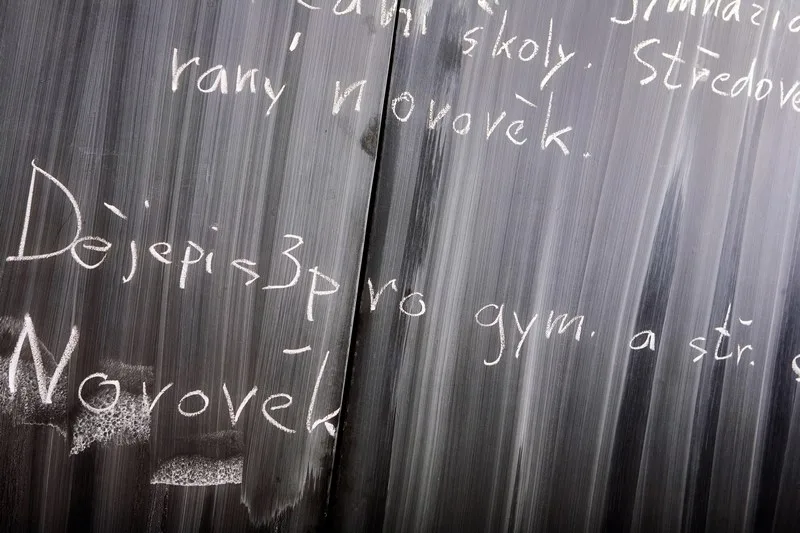 školy. Středově
raný novověk.
Dějepis 3 pro gym. a stř.
Novověk